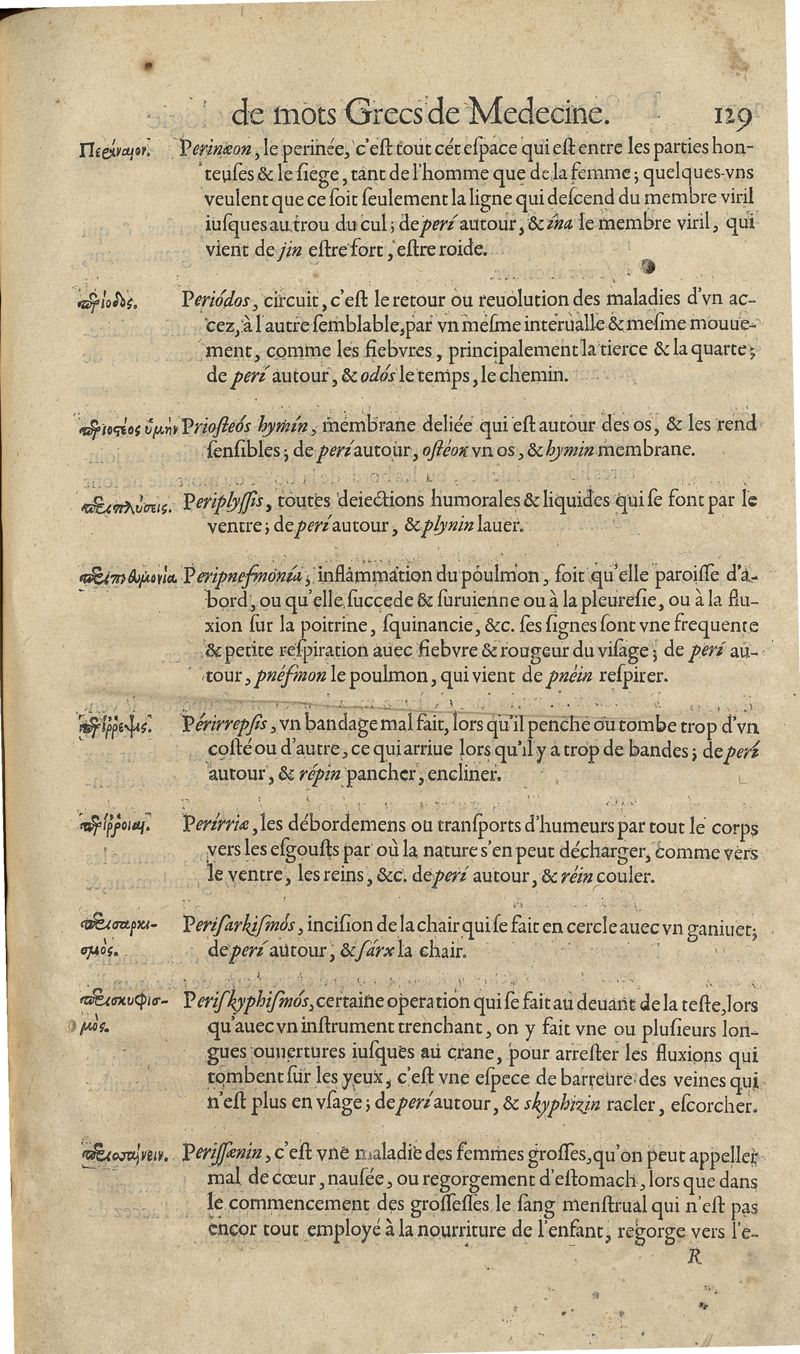 de mots Grecs de Medecine. 129
Περίναιον. Perinæon, le perinée, c'est tout cét espace qui est entre les parties hon-
teuses & le siege, tant de l'homme que de la femme; quelques-vns
veulent que ce soit seulement la ligne qui descend du membre viril
iusques au trou du cul; de perí autour, & ína le membre viril, qui
vient de jin estre fort, estre roide.
περίοδος. Periódos, circuit, c'est le retour ou reuolution des maladies d'vn ac-
cez, à l'autre semblable, par vn mesme interualle & mesme mouue-
ment, comme les fiebvres, principalement la tierce & la quarte;
de perí autour, & odós le temps, le chemin.
περιοστέος ὑμὴν Priosteós hymín, membrane deliée qui est autour des os, & les rend
sensibles; de perí autour, ostéon vn os, & hymin membrane.
περιπλύσεις. Periplyssis, toutes deiections humorales & liquides qui se font par le
ventre; de perí autour, & plynin lauer.
περιπνευμονία. Peripnefmonía, inflammation du poulmon, soit qu'elle paroisse d'a-
bord, ou qu'elle succede & suruienne ou à la pleuresie, ou à la flu-
xion sur la poitrine, squinancie, &c. ses signes sont vne frequente
& petite respiration auec fiebvre & rougeur du visage; de perí au-
tour, pnéfmon le poulmon, qui vient de pnéin respirer.
περίρρεψις. Périrrepsis, vn bandage mal fait, lors qu'il penche ou tombe trop d'vn
costé ou d'autre, ce qui arriue lors qu'il y a trop de bandes; de perí
autour, & répin pancher, encliner.
περίρροιαι. Perírriæ, les débordemens ou transports d'humeurs par tout le corps
vers les esgousts par où la nature s'en peut décharger, comme vers
le ventre, les reins, &c. de perí autour, & réin couler.
περισαρκι- Perisarkismós, incision de la chair qui se fait en cercle auec vn ganiuet;
σμὸς. de perí autour, & sárx la chair.
περισκυφισ- Periskyphismós, certaine operation qui se fait au deuant de la teste, lors
μὸς. qu'auec vn instrument trenchant, on y fait vne ou plusieurs lon-
gues ouuertures iusques au crane, pour arrester les fluxions qui
tombent sur les yeux, c'est vne espece de barreure des veines qui
n'est plus en vsage; de perí autour, & skyphizin racler, escorcher.
περισσαίνειν. Perissænin, c'est vne maladie des femmes grosses, qu'on peut appeller
mal de cœur, nausée, ou regorgement d'estomach, lors que dans
le commencement des grossesses le sang menstrual qui n'est pas
encor tout employé à la nourriture de l'enfant, regorge vers l'e-
R